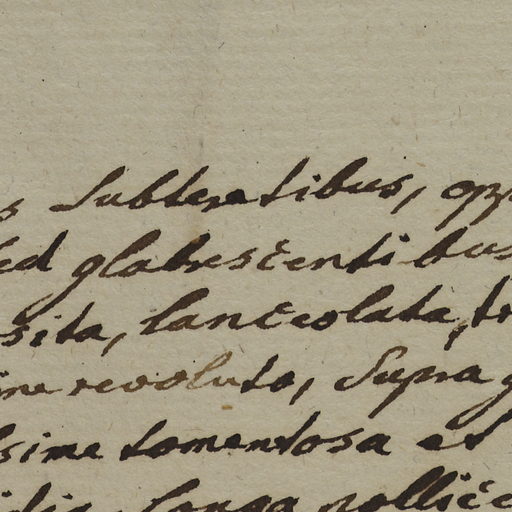 s subteretibus, opp
sed glabrescentibus
sita, lanceolata, tr
ime revoluta, supra g
ssime tomentosa et
longa pollice